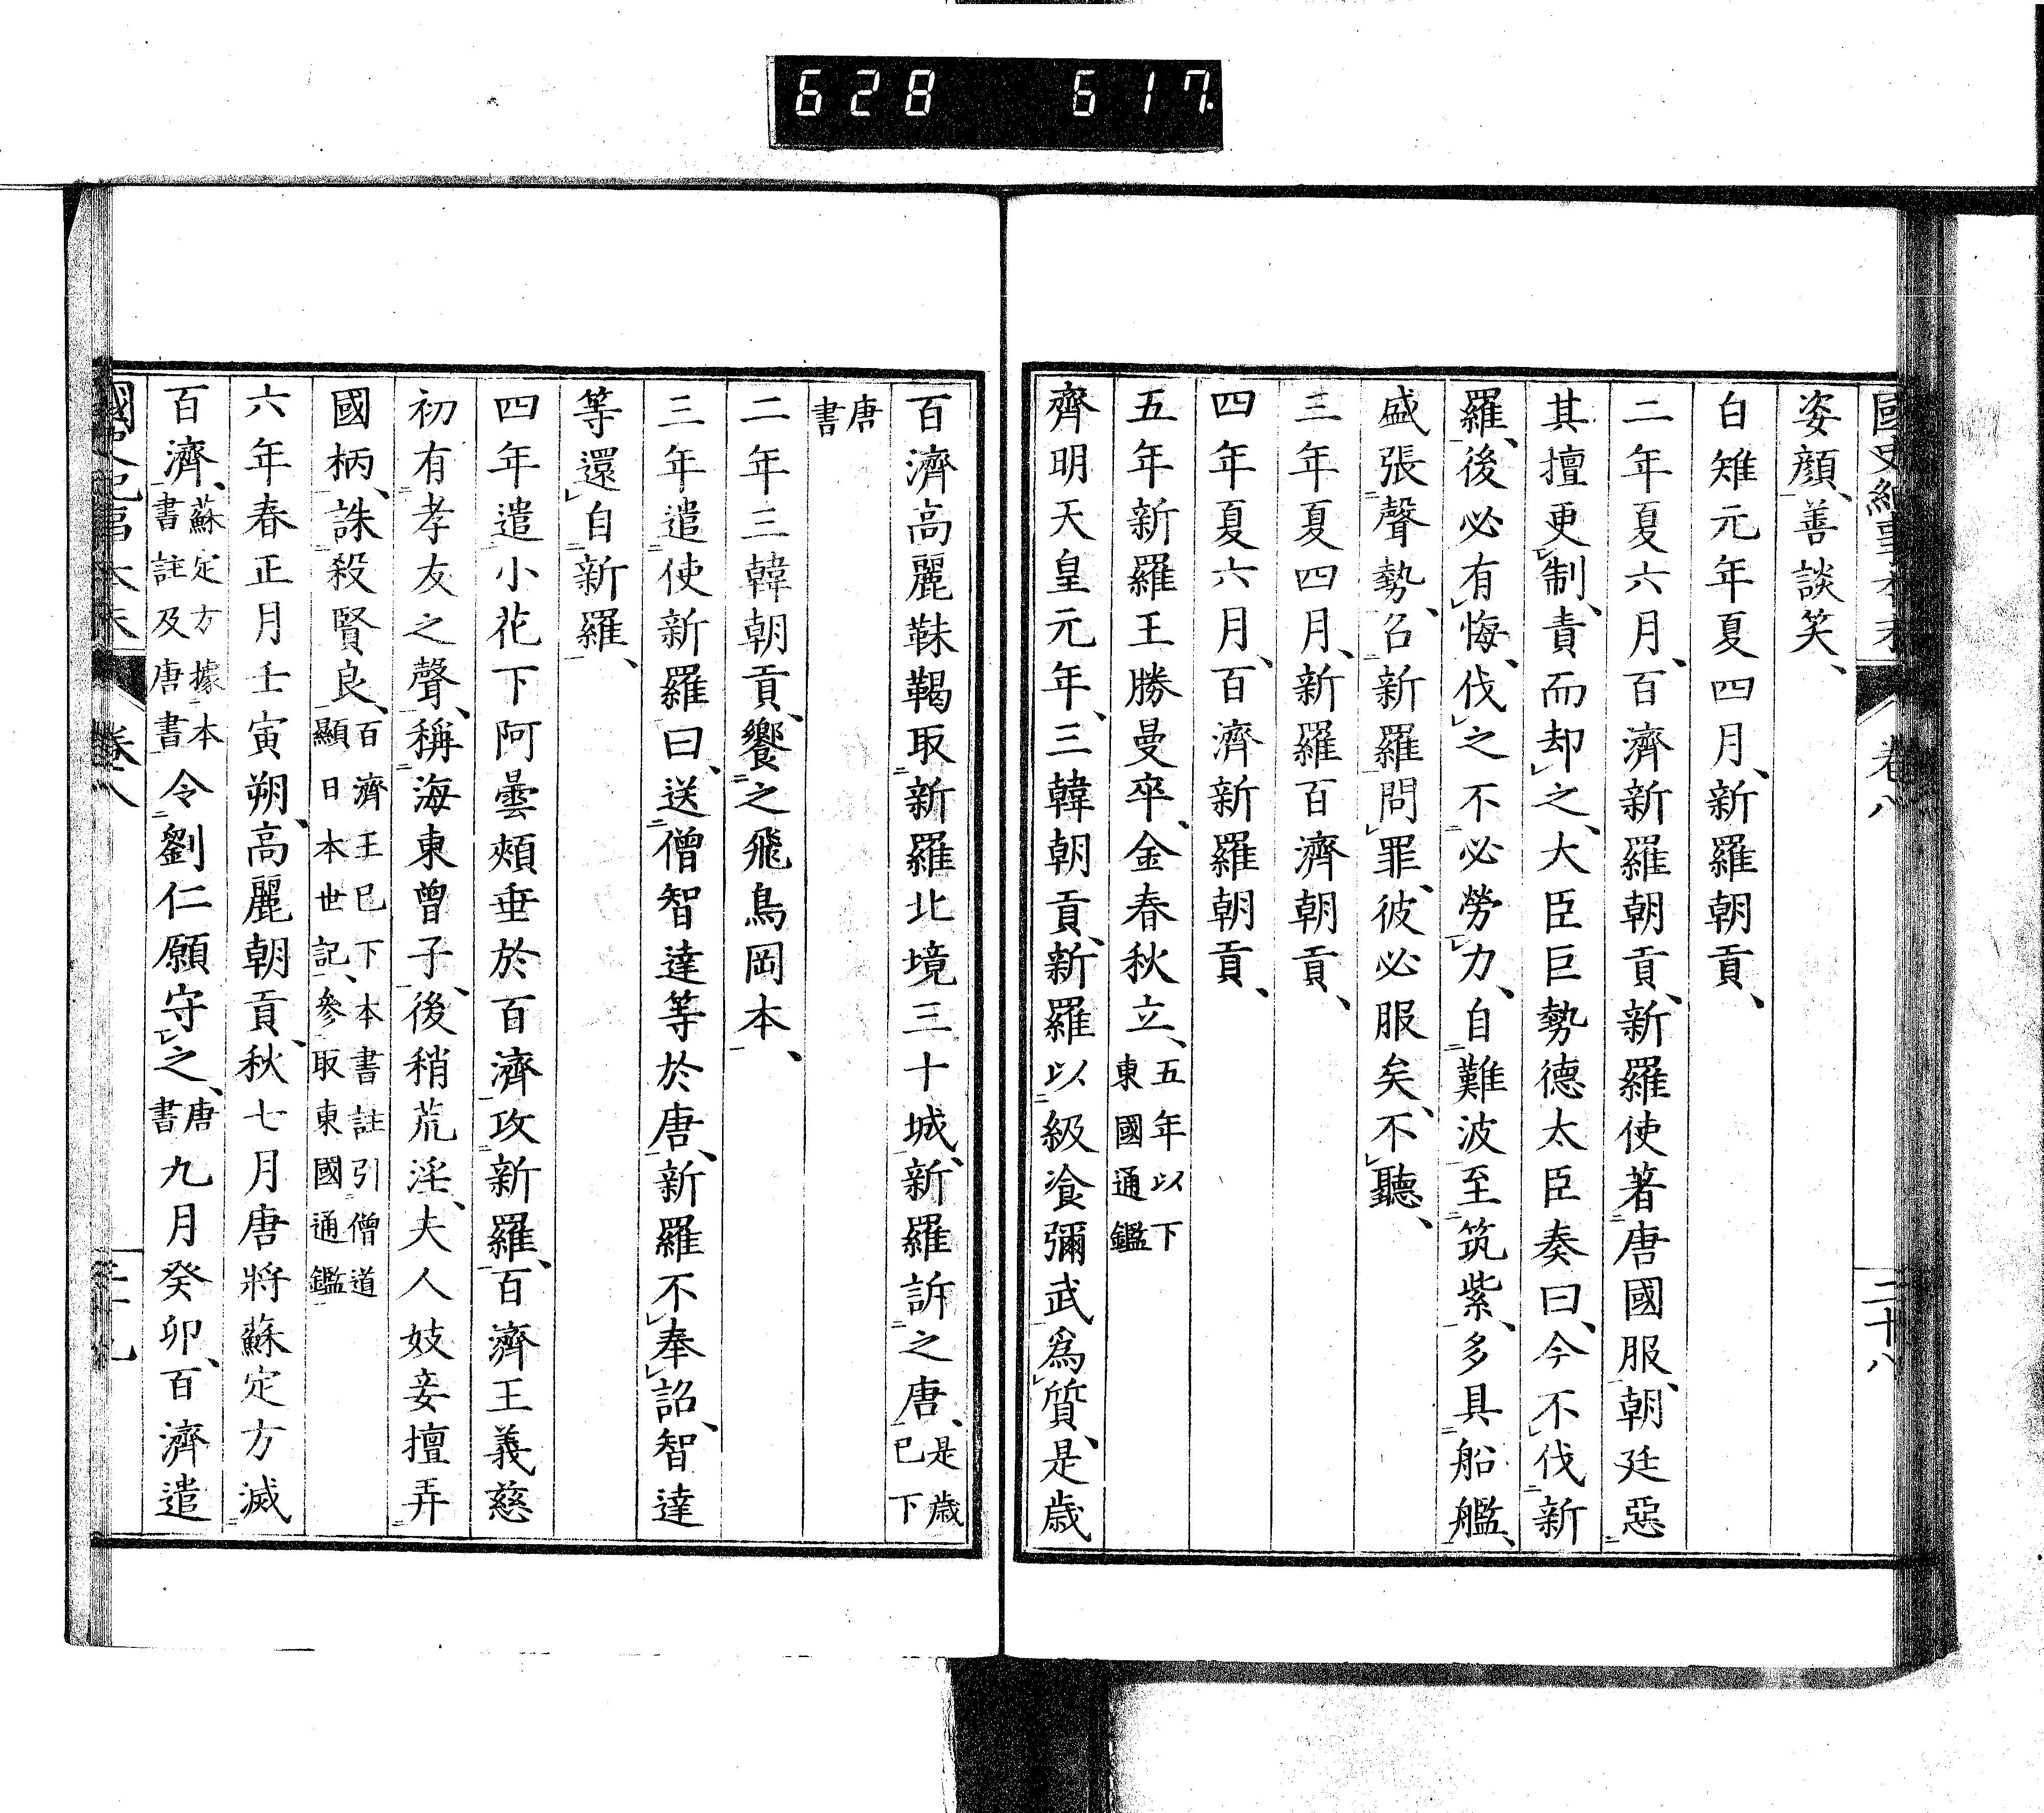 628 617.
國史紀事本末 卷八 二十八
姿顔、善談笑、
白雉元年夏四月、新羅朝貢、
二年夏六月、百濟新羅朝貢、新羅使著唐國服、朝廷惡
其擅更制、責而却之、大臣巨勢德太臣奏曰、今不伐新
羅、後必有悔、伐之不必勞力、自難波至筑紫、多具船艦、
盛張聲勢、召新羅問罪、彼必服矣、不聽、
三年夏四月、新羅百濟朝貢、
四年夏六月、百濟新羅朝貢、
五年新羅王勝曼卒、金春秋立、五年以下東國通鑑
齊明天皇元年、三韓朝貢、新羅以級飡彌武爲質、是歳
百濟高麗靺鞨取新羅北境三十城、新羅訴之唐、是歳已下
唐書
二年三韓朝貢、饗之飛鳥岡本、
三年遣使新羅曰、送僧智達等於唐、新羅不奉詔、智達
等還自新羅、
四年遣小花下阿曇頰垂於百濟攻新羅、百濟王義慈
初有孝友之聲、稱海東曾子、後稍荒淫、夫人妓妾擅弄
國柄、誅殺賢良、百濟王已下本書註引僧道顯日本世記、參取東國通鑑
六年春正月壬寅朔、高麗朝貢、秋七月唐將蘇定方滅
百濟、蘇定方據本書註及唐書令劉仁願守之、唐書九月癸卯、百濟遣
國史紀事本末 卷八 二十九